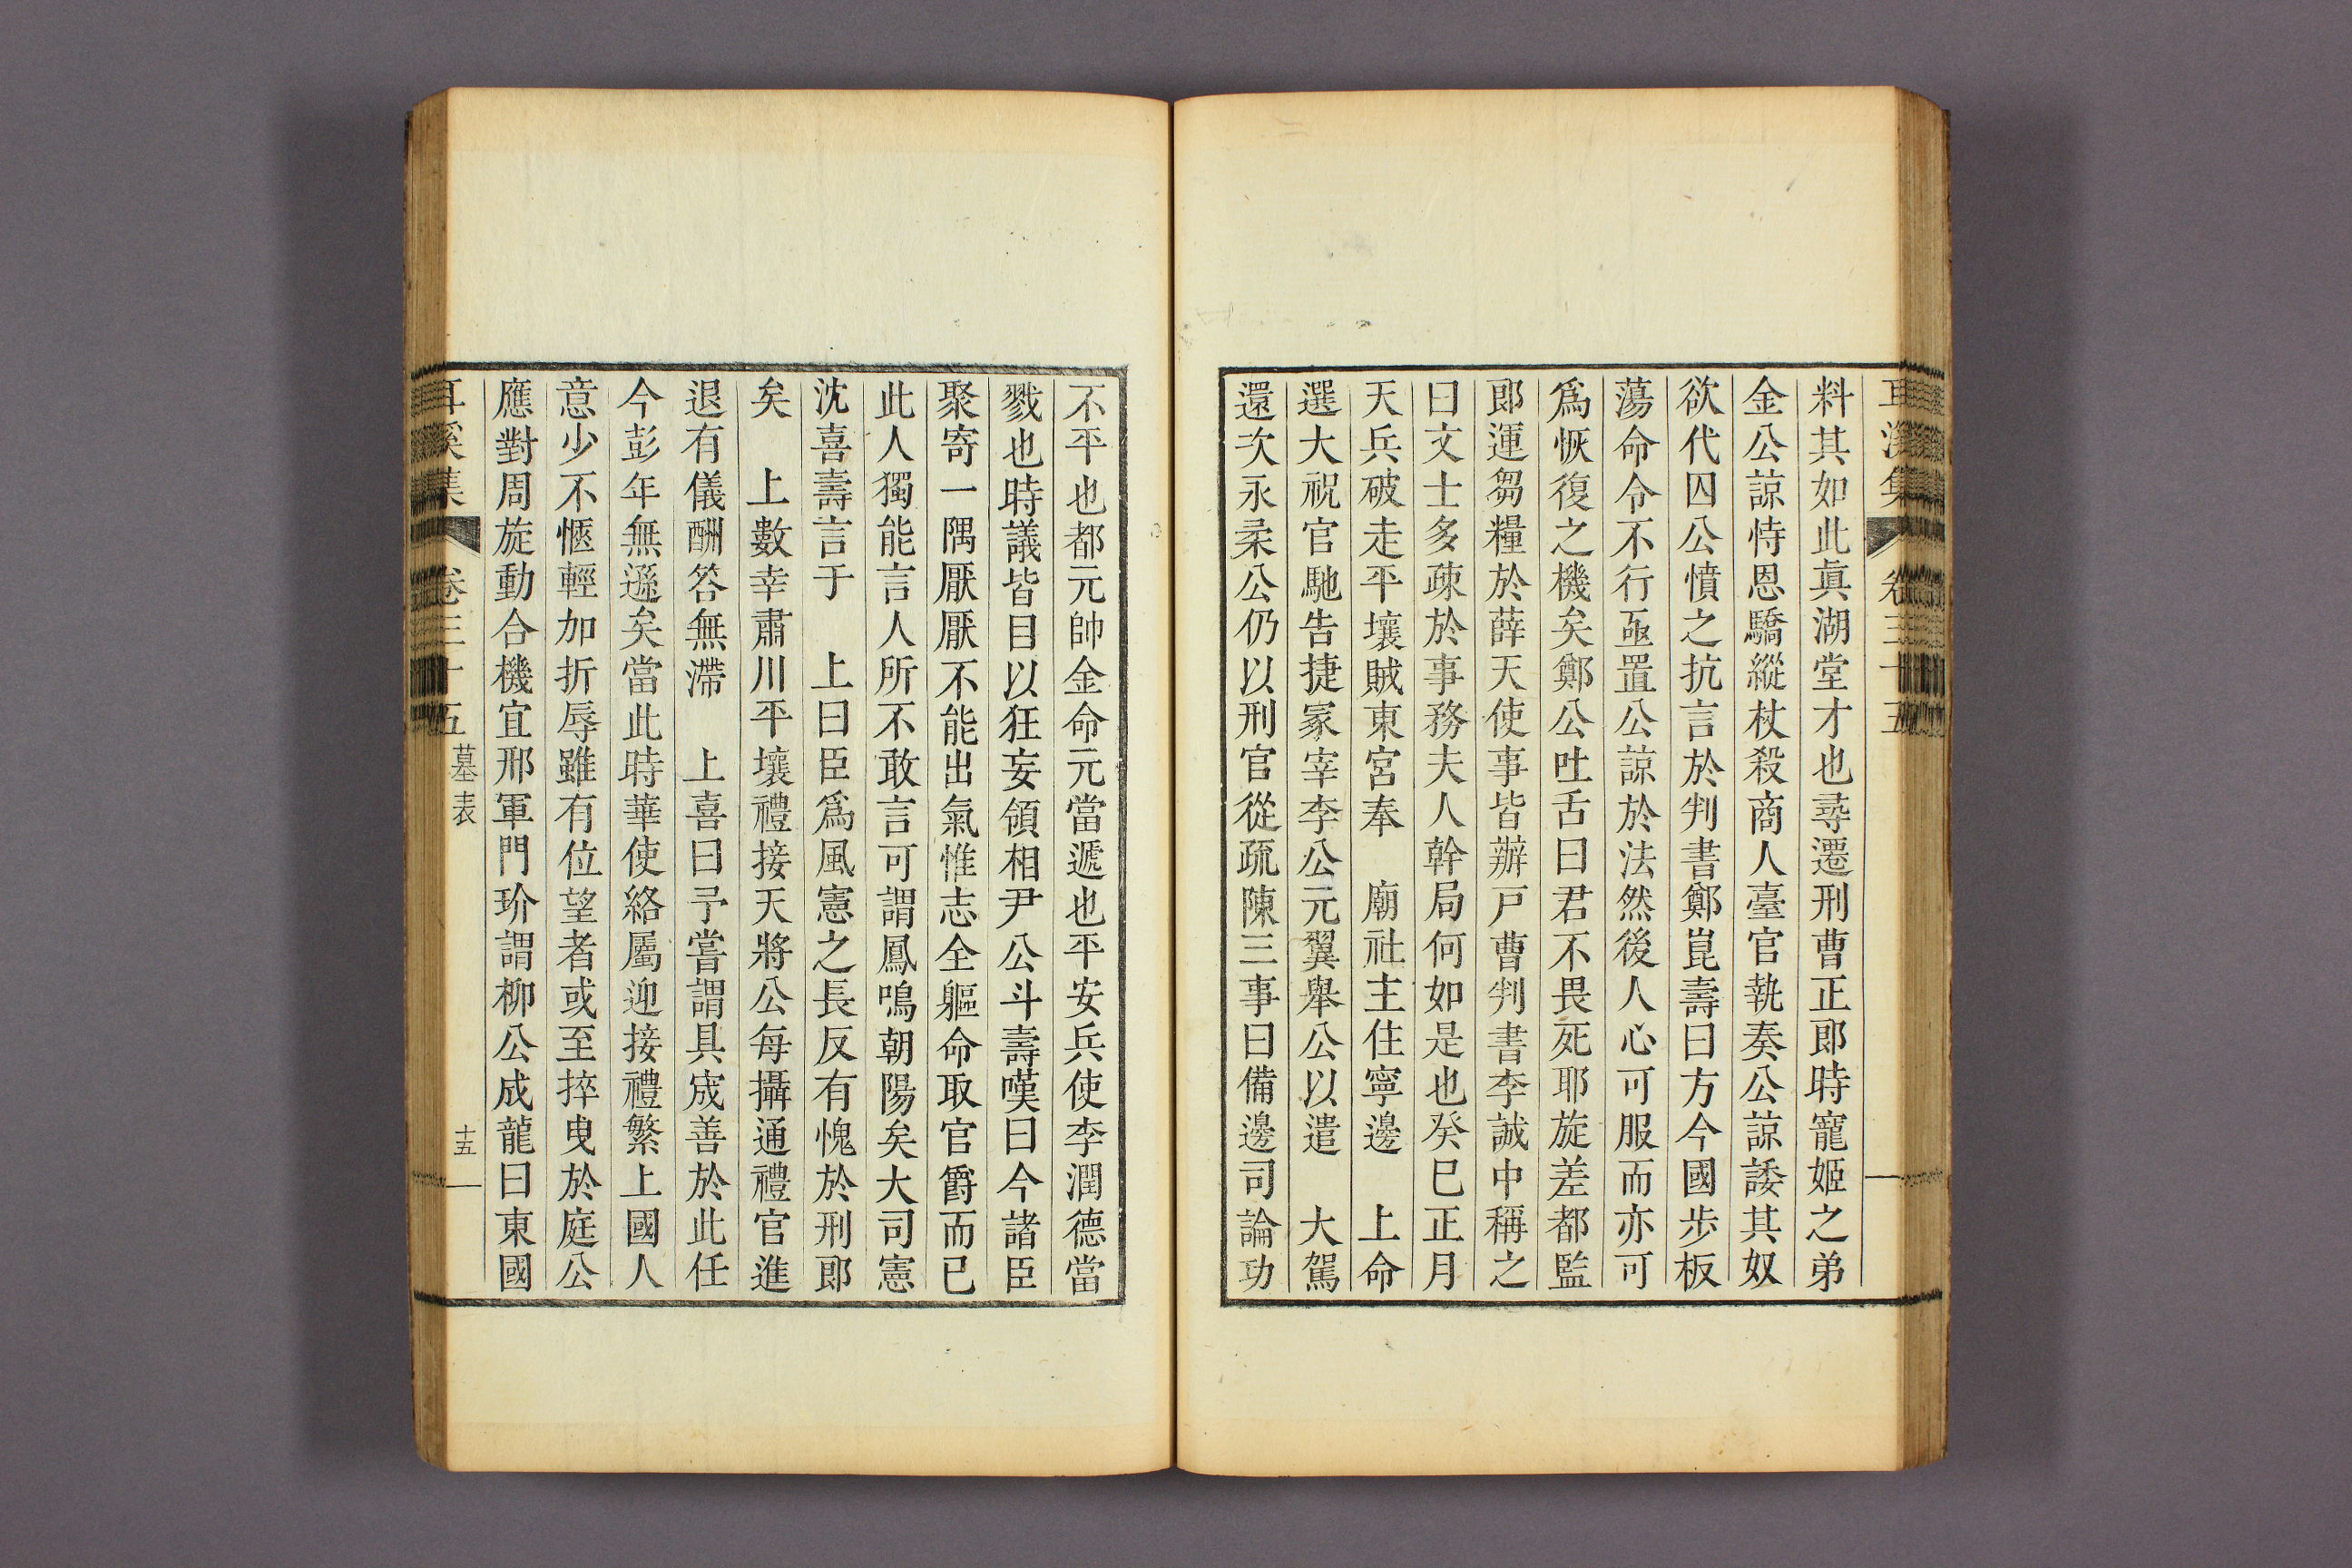 耳溪集 卷三十五
料其如此眞湖堂才也尋遷刑曹正郎時寵姬之弟
金公諒恃恩驕縱杖殺商人臺官執奏公諒諉其奴
欲代囚公憤之抗言於判書鄭崑壽曰方今國步板
蕩命令不行亟置公諒於法然後人心可服而亦可
爲恢復之機矣鄭公吐舌曰君不畏死耶旋差都監
郎運芻糧於薛天使事皆辦戶曹判書李誠中稱之
曰文士多疎於事務夫人幹局何如是也癸巳正月
天兵破走平壤賊東宮奉　廟社主住寧邊　上命
選大祝官馳告捷冢宰李公元翼舉公以遣　大駕
還次永柔公仍以刑官從疏陳三事曰備邊司論功
不平也都元帥金命元當遞也平安兵使李潤德當
戮也時議皆目以狂妄領相尹公斗壽嘆曰今諸臣
聚寄一隅厭厭不能出氣惟志全軀命取官爵而已
此人獨能言人所不敢言可謂鳳鳴朝陽矣大司憲
沈喜壽言于　上曰臣爲風憲之長反有愧於刑郎
矣　上數幸肅川平壤禮接天將公每攝通禮官進
退有儀酬答無滯　上喜曰予嘗謂具宬善於此任
今彭年無遜矣當此時華使絡屬迎接禮繁上國人
意少不愜輕加折辱雖有位望者或至捽曳於庭公
應對周旋動合機宜邢軍門玠謂柳公成龍曰東國
耳溪集 卷三十五 墓表 十五